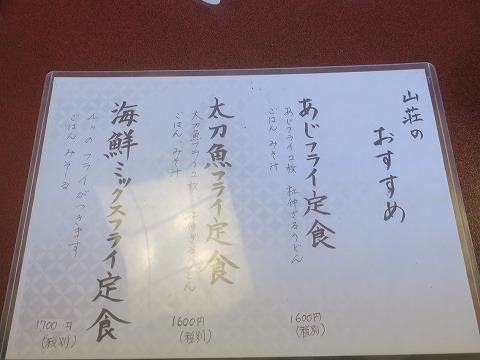 山荘の
おすすめ
あじフライ定食
あじフライ2枚 杜仲ざるうどん
ごはん みそ汁
1600円
(税別)
太刀魚フライ定食
太刀魚フライ2枚 ざるうどん
ごはん みそ汁
1600円
(税別)
海鮮ミックスフライ定食
のフライがつきます
ごはん みそ
1700円
(税別)